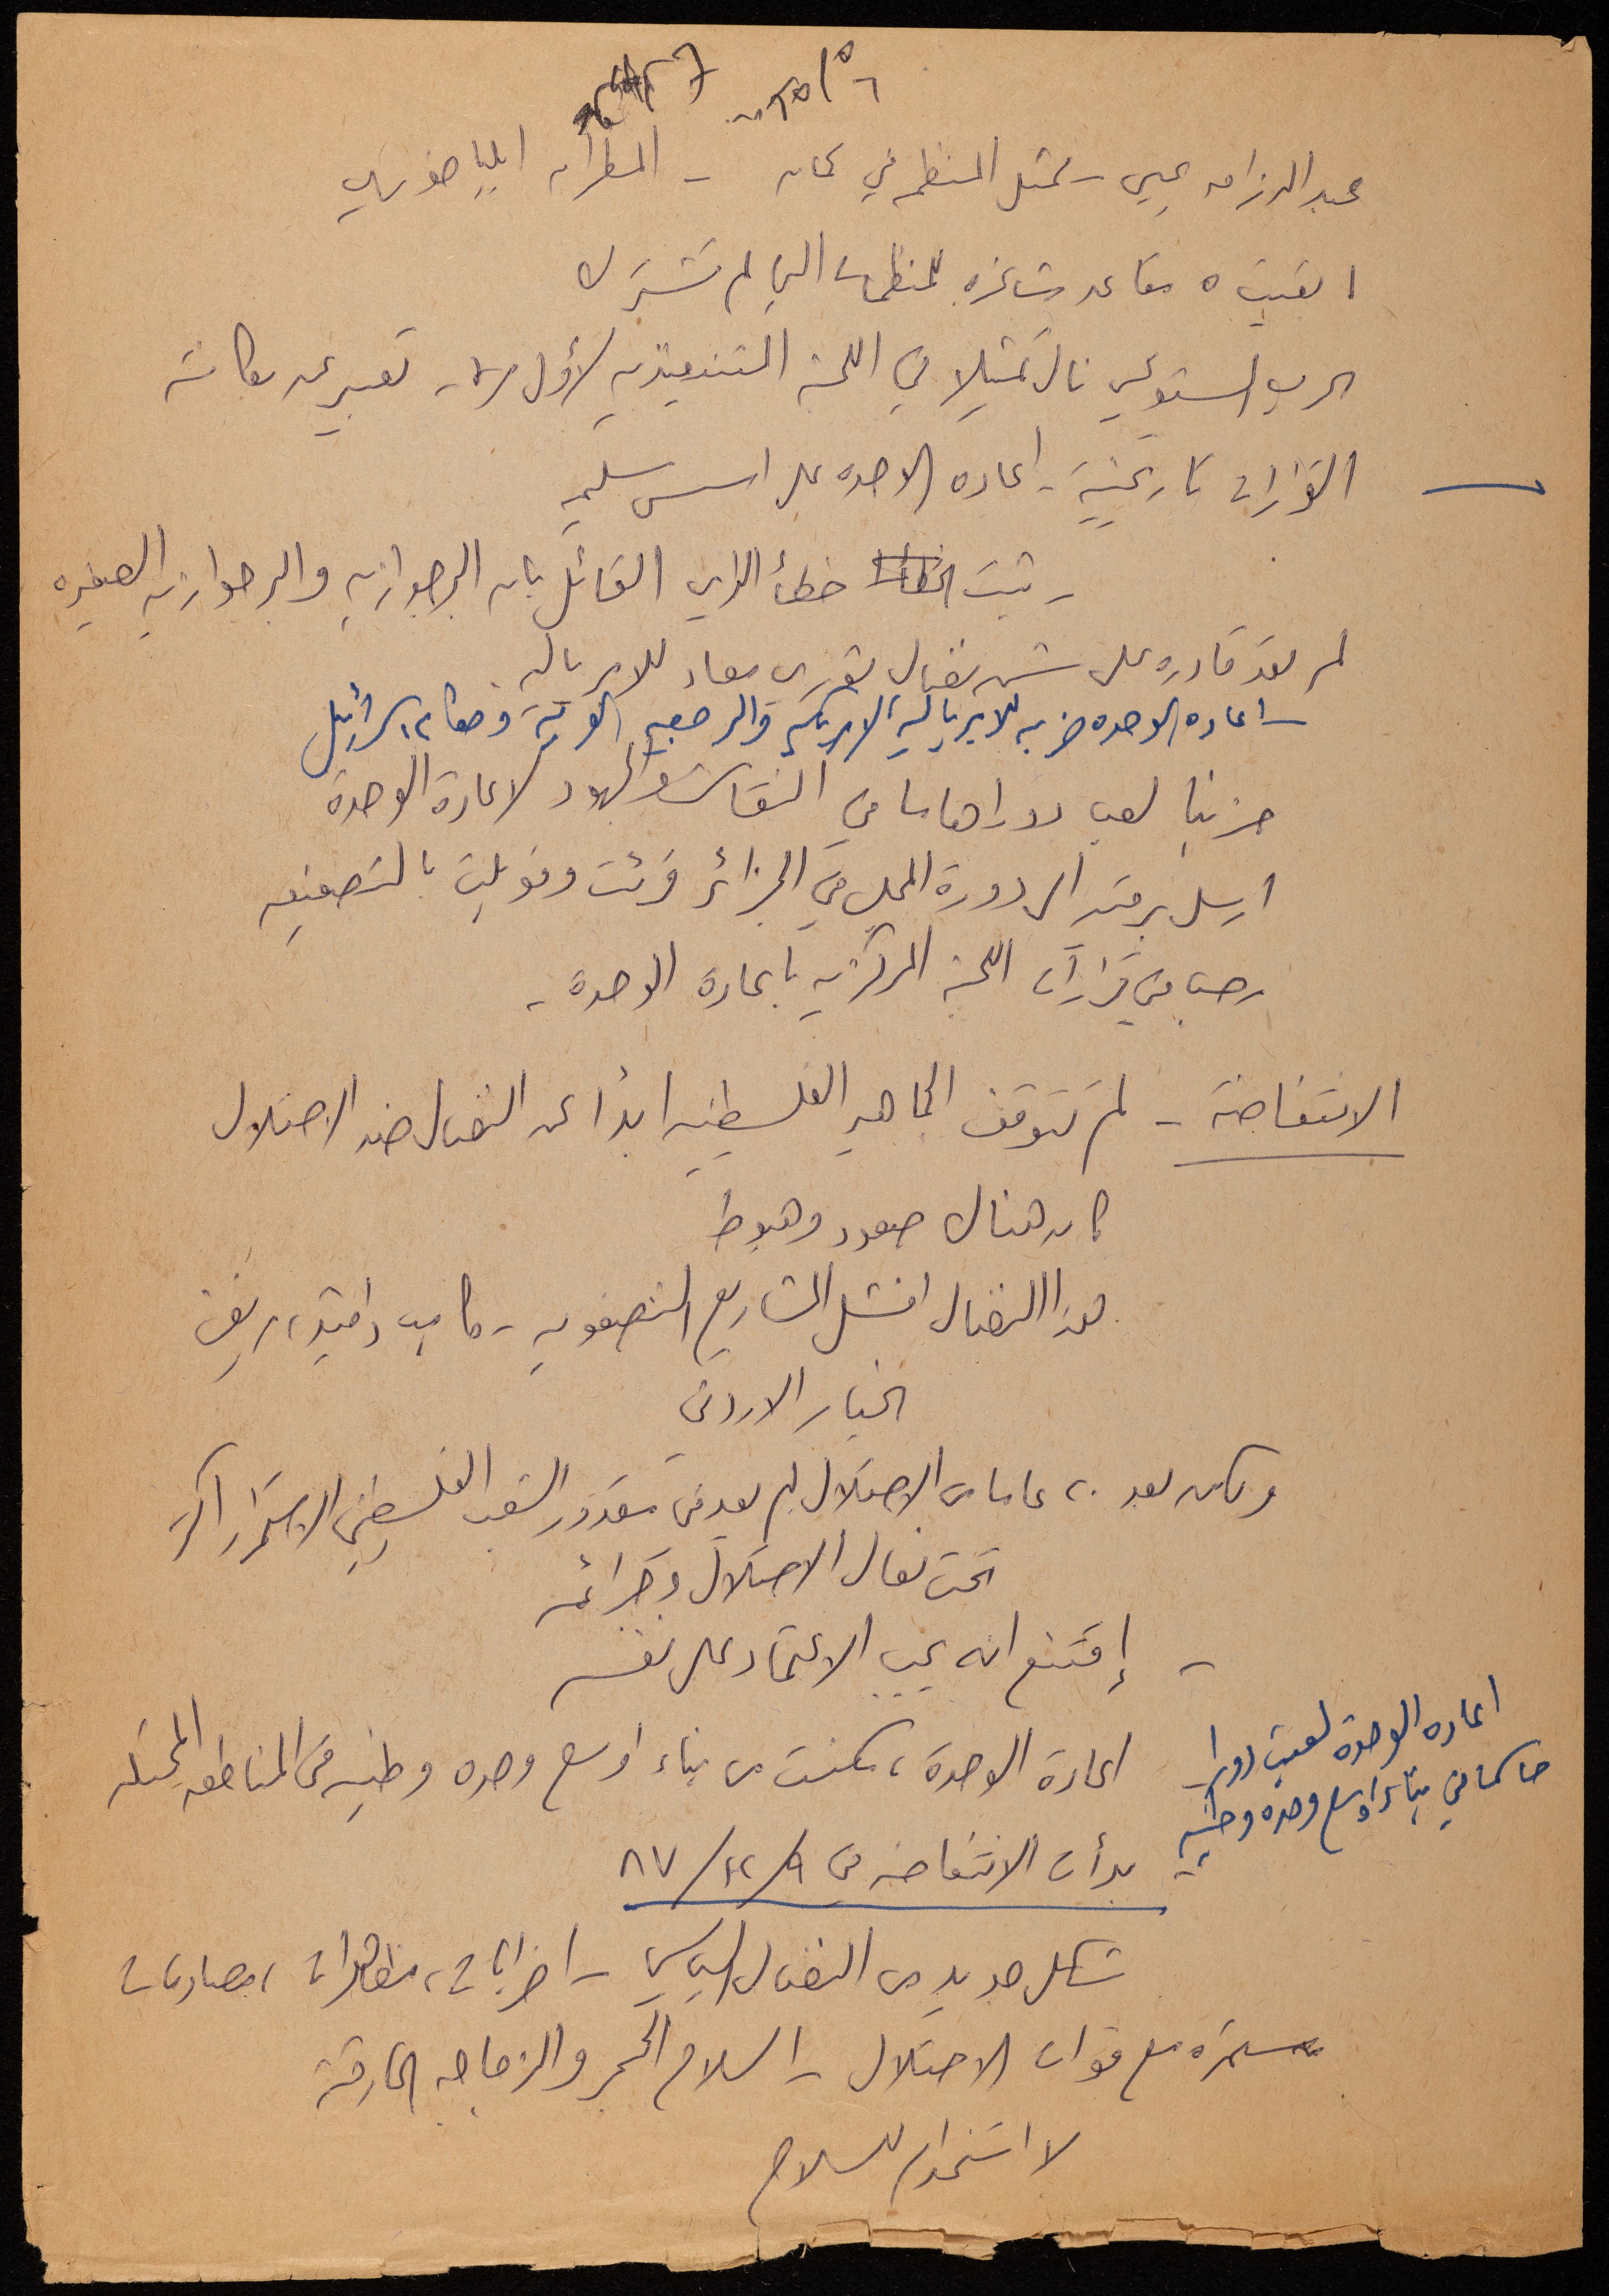 عبد الرزاق يحيى - ممثل المنظمه في عمان - المطران ايليا خوري
ابقيت ٥ مقاعد شاغره للمنظمات التي لم تشترك
الحزب الشيوعي نال تمثيلا في اللجنة التنفيذيه لأول مره - تعبير عن مكانته
القرارات تاريخية - اعاده الوحده على اسس سليمه
- ثبت خطأ الرأي القائل بان البرجوازيه والبرجوازيه الصغيره
لم تعد قادره على شن نضال ثوري معاد للامبرياليه
- اعاده الوحده ضربه للامبرياليه الامريكيه والرجعيه العربية وحكام اسرائيل
حزبنا لعب دورا هاما في النقاش والجهود لاعادة الوحدة
ارسل برقية الى دورة المجلس في الجزائر قرئت وقوبلت بالتصفيق
رحب في قرارات اللجنة المركزيه باعادة الوحدة -
الانتفاضة - لم تتوقف الجماهير الفلسطينيه ابدا عن النضال ضد الاحتلال
كان هناك صعود وهبوط
هذا النضال افشل المشاريع التصفويه - كامب دافيد، ريغن
الخيار الاردني
ولكن بعد ٢٠ عاما من الاحتلال لم يعد في مقدور الشعب الفلسطيني الاستمرار اكثر
تحت نعال الاحتلال وجرائمه
- إقتنع انه يجب الاعتماد على نفسه
اعادة الوحدة، مكنت من بناء اوسع وحده وطنيه في المناطق المحتله
اعاده الوحدة لعبت دورا
حاسما في بناء اوسع وحده وطنيه
بدأت الانتفاضه في ٩/١٢/٨٧
شكل جديد من النضال السياسي - اضرابات، مظاهرات، مصادمات
مستمرة مع قوات الاحتلال - السلاح الحجر والزجاجه الحارقة
لا استخدام للسلاح